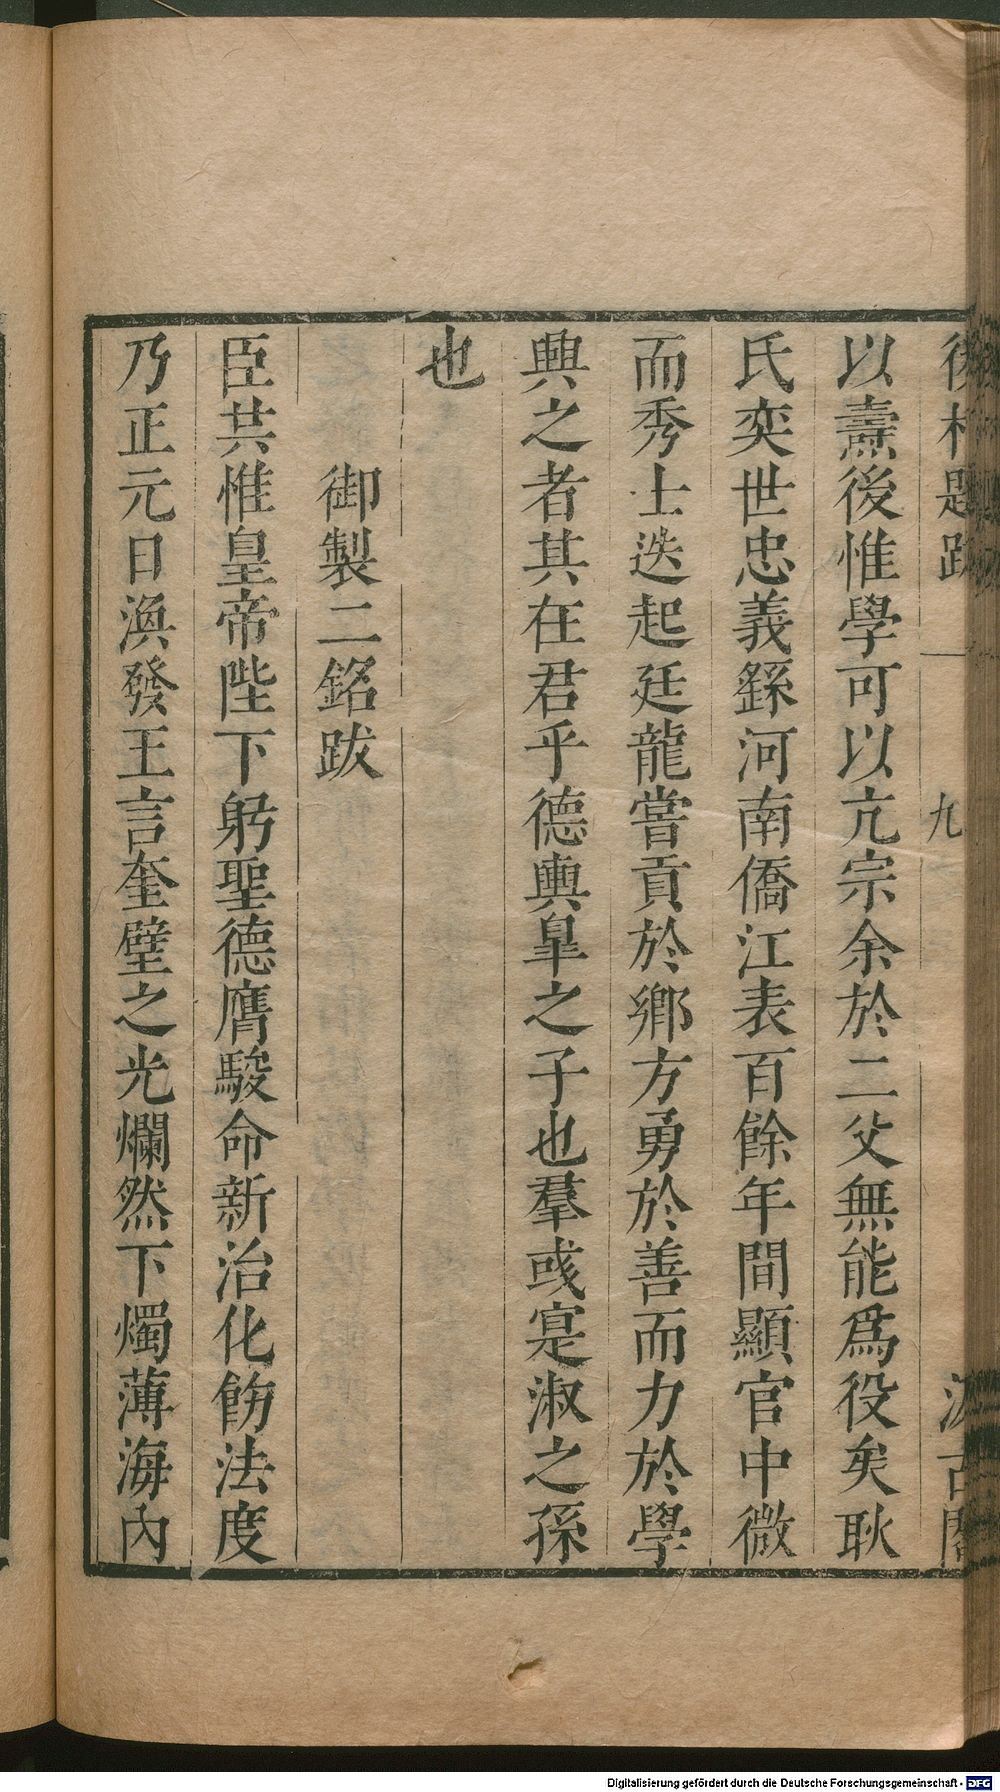 後村題跋 九 汲古閣
以燾後惟學可以亢宗余於二父無能爲役矣耿
氏奕世忠義繇河南僑江表百餘年間顯官中微
而秀士迭起廷龍嘗貢於鄉方勇於善而力於學
興之者其在君乎德輿臯之子也羣彧寔淑之孫
也
御製二銘跋
臣共惟皇帝陛下躬聖德膺駿命新治化飭法度
乃正元日渙發王言奎璧之光爛然下燭薄海內
Digitalisierung gefördert durch die Deutsche Forschungsgemeinschaft - DFG